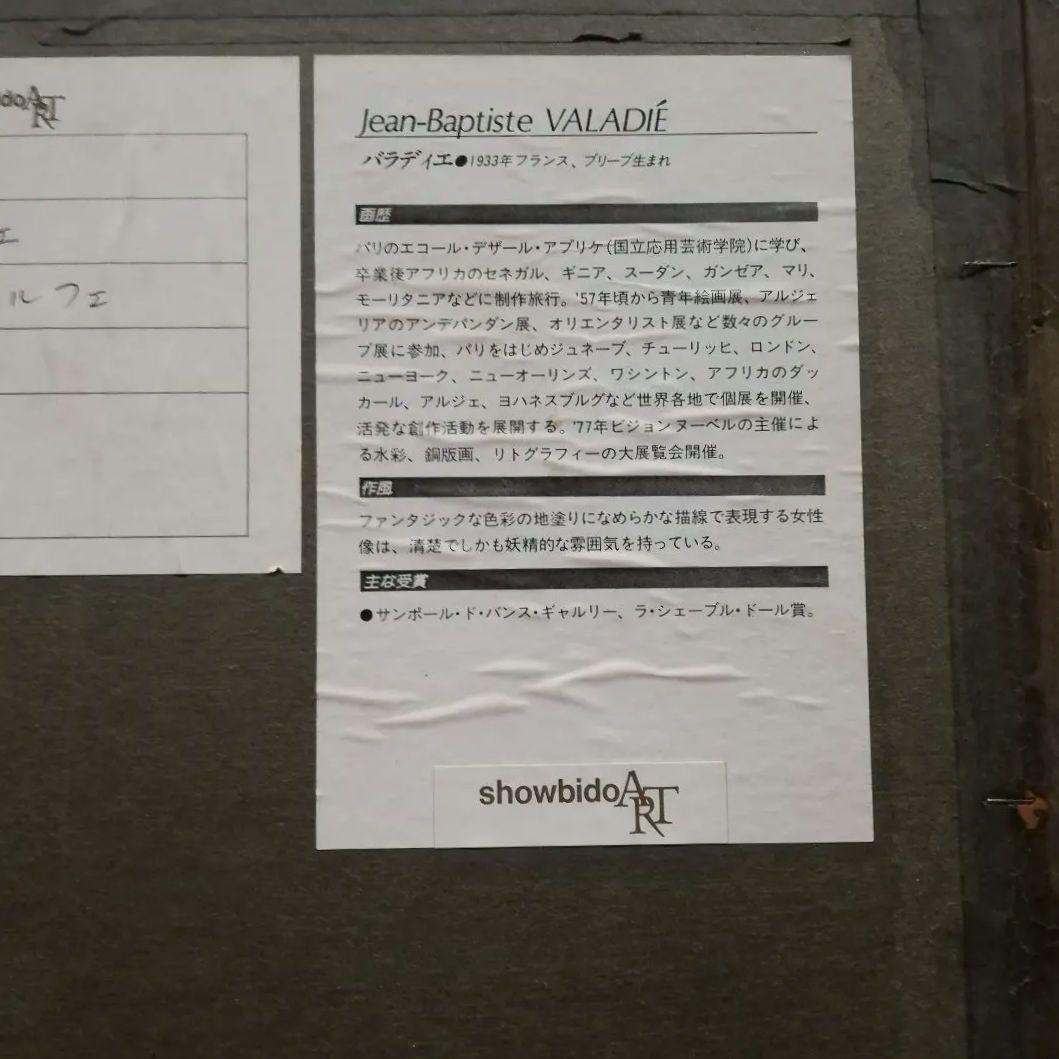 do ART
ェ
ルフェ
Jean-Baptiste VALADIÉ
バラディエ●1933年フランス、ブリーブ生まれ
画歴
パリのエコール・デザール・アプリケ(国立応用芸術学院)に学び、
卒業後アフリカのセネガル、ギニア、スーダン、ガンゼア、マリ、
モーリタニアなどに制作旅行。'57年頃から青年絵画展、アルジェ
リアのアンデパンダン展、オリエンタリスト展など数々のグルー
プ展に参加、パリをはじめジュネーブ、チューリッヒ、ロンドン、
ニューヨーク、ニューオーリンズ、ワシントン、アフリカのダッ
カール、アルジェ、ヨハネスブルグなど世界各地で個展を開催、
活発な創作活動を展開する。'77年ビジョンヌーベルの主催によ
る水彩、銅版画、リトグラフィーの大展覧会開催。
作風
ファンタジックな色彩の地塗りになめらかな描線で表現する女性
像は、清楚でしかも妖精的な雰囲気を持っている。
主な受賞
●サンポール・ド・バンス・ギャルリー、ラ・シェーブル・ドール賞。
showbido ART